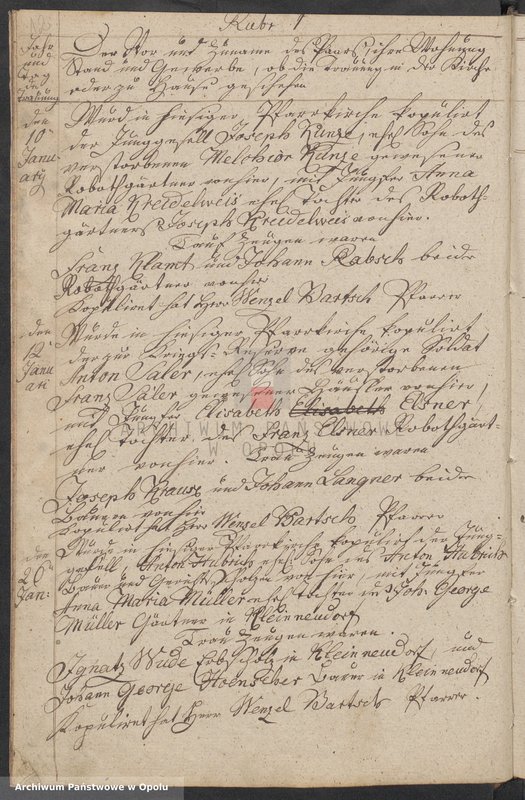 Rubr 1
Jahr
und
Tag
der
Trauung
Der Vor und Zuname des Paars, ihre Wohnung
Stand und Gewerbe, ob die Trauung in der Kirche
oder zu Hause geschehen
den
10
Janu
ary
Wurd in hiesiger Pfarrkirche kopulirt
der Junggesell Joseph Kunze, ehel Sohn des
verstorbenen Melchior Kunze gewesener
Robothgärtner von hier, mit Jungfer Anna
Maria Kreidelweis ehel Tochter des Roboth-
gärtners Joseph Kreidelweis von hier.
Trau Zeugen waren
Franz Klamt und Johann Rabsch beide
Robothgärtner von hier
Kopuliret hat Herr Wenzel Bartsch Pfarrer
den
12
Janu
ari
Wurde in hiesiger Pfarrkirche kopulirt
der zur Kriegs-Reserve gehörige Soldat
Anton Säler, ehel Sohn des verstorbenen
Franz Säler gewesener Häusler von hier,
mit Jungfer Elisabeth Elisabeth Elsner,
ehel Tochter des Franz Elsner Robothgärt-
ner von hier. Trau Zeugen waren
Joseph Krause und Johann Langner beide
Bauern von hier
Kopulirt hat Herr Wenzel Bartsch, Pfarrer
den
26
Jan:
Wurde in hiesiger Pfarrkirche kopulirt der Jung-
gesell, Anton Hubrich ehel Sohn des Anton Hubrich
Bauer und Gerichtsscholzen von hier, mit Jungfer
Anna Maria Müller ehel Tochter des Joh. George
Müller Gärtner in Kleinneudorf
Trau Zeugen waren.
Ignatz Wude Erbscholz in Kleinneudorf und
Johann George Bauer in Kleinneudorf
Kopuliret hat Herr Wenzel Bartsch Pfarrer.
ARCHIWUM PAŃSTWOWE
W OPOLU
Archiwum Państwowe w Opolu